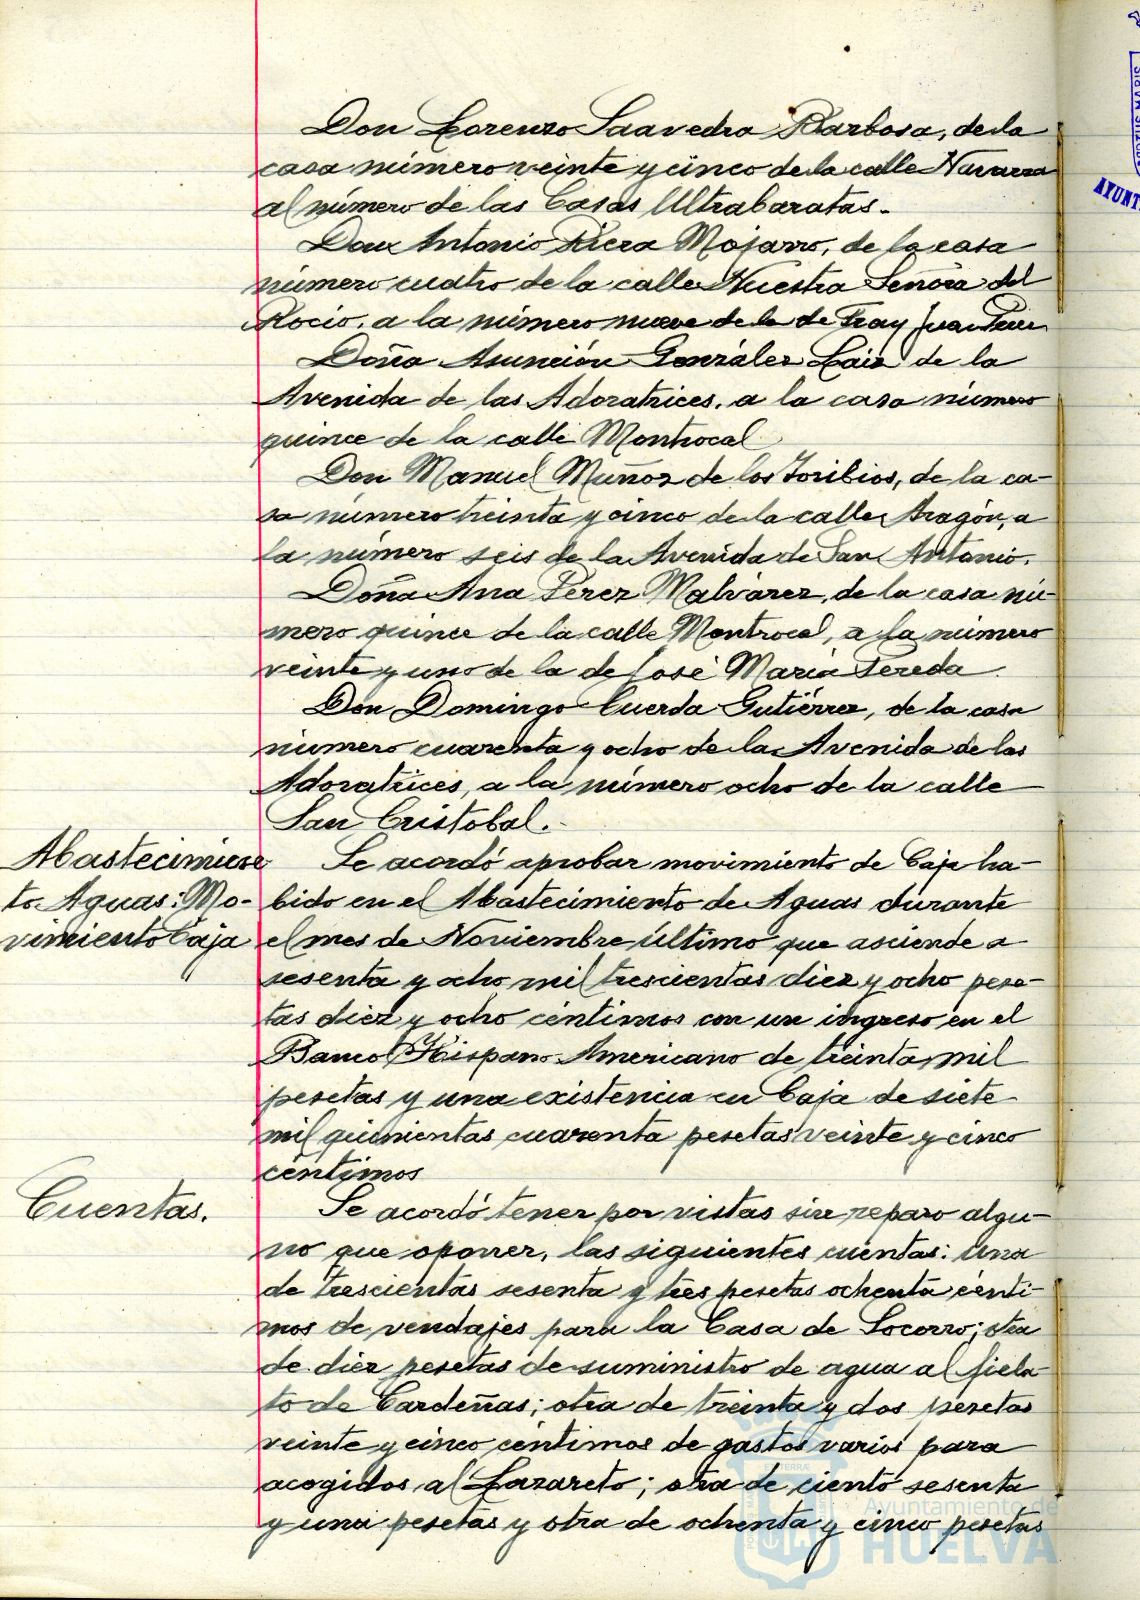 Don Lorenzo Saavedra Barbosa, de la
casa número veinte y cinco de la calle Navarra
al número de las Casas Ultrabaratas.-
Don Antonio Riera Mojarro, de la casa
número cuatro de la calle Nuestra Señora del
Rocio, a la número nueve de la de Fray Juan Perez
Doña Asunción González Laiz de la
Avenida de las Adoratrices, a la casa número
quince de la calle Montrocal
Don Manuel Muñoz de los Toribios, de la ca-
sa número treinta y cinco de la calle Aragón, a
la número seis de la Avenida de San Antonio.
Doña Ana Pérez Malvárez, de la casa nú-
mero quince de la calle Montrocal, a la número
veinte y uno de la de José María Pereda.
Don Domingo Cuerda Gutiérrez, de la casa
número cuarenta y ocho de la Avenida de las
Adoratrices, a la número ocho de la calle
San Cristobal.-
Abastecimien
to Aguas: Mo-
vimiento Caja
Se acordó aprobar movimiento de Caja ha-
bido en el Abastecimiento de Aguas durante
el mes de Noviembre último que asciende a
sesenta y ocho mil trescientas diez y ocho pese-
tas diez y ocho céntimos con un ingreso en el
Banco Hispano-Americano de treinta mil
pesetas y una existencia en Caja de siete
mil quinientas cuarenta pesetas veinte y cinco
céntimos
Cuentas.
Se acordó tener por vistas sin reparo algu-
no que oponer, las siguientes cuentas: una
de trescientas sesenta y tres pesetas ochenta cénti-
mos de vendajes para la Casa de Socorro; otra
de diez pesetas de suministro de agua al fiela-
to de Cardeñas; otra de treinta y dos pesetas
veinte y cinco céntimos de gastos varios para
acogidos al Lazareto; otra de ciento sesenta
y una pesetas y otra de ochenta y cinco pesetas
Ayuntamiento de
HUELVA